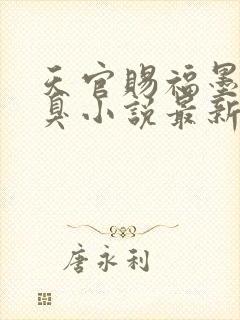 天官赐福墨
臭小说最新
唐永利